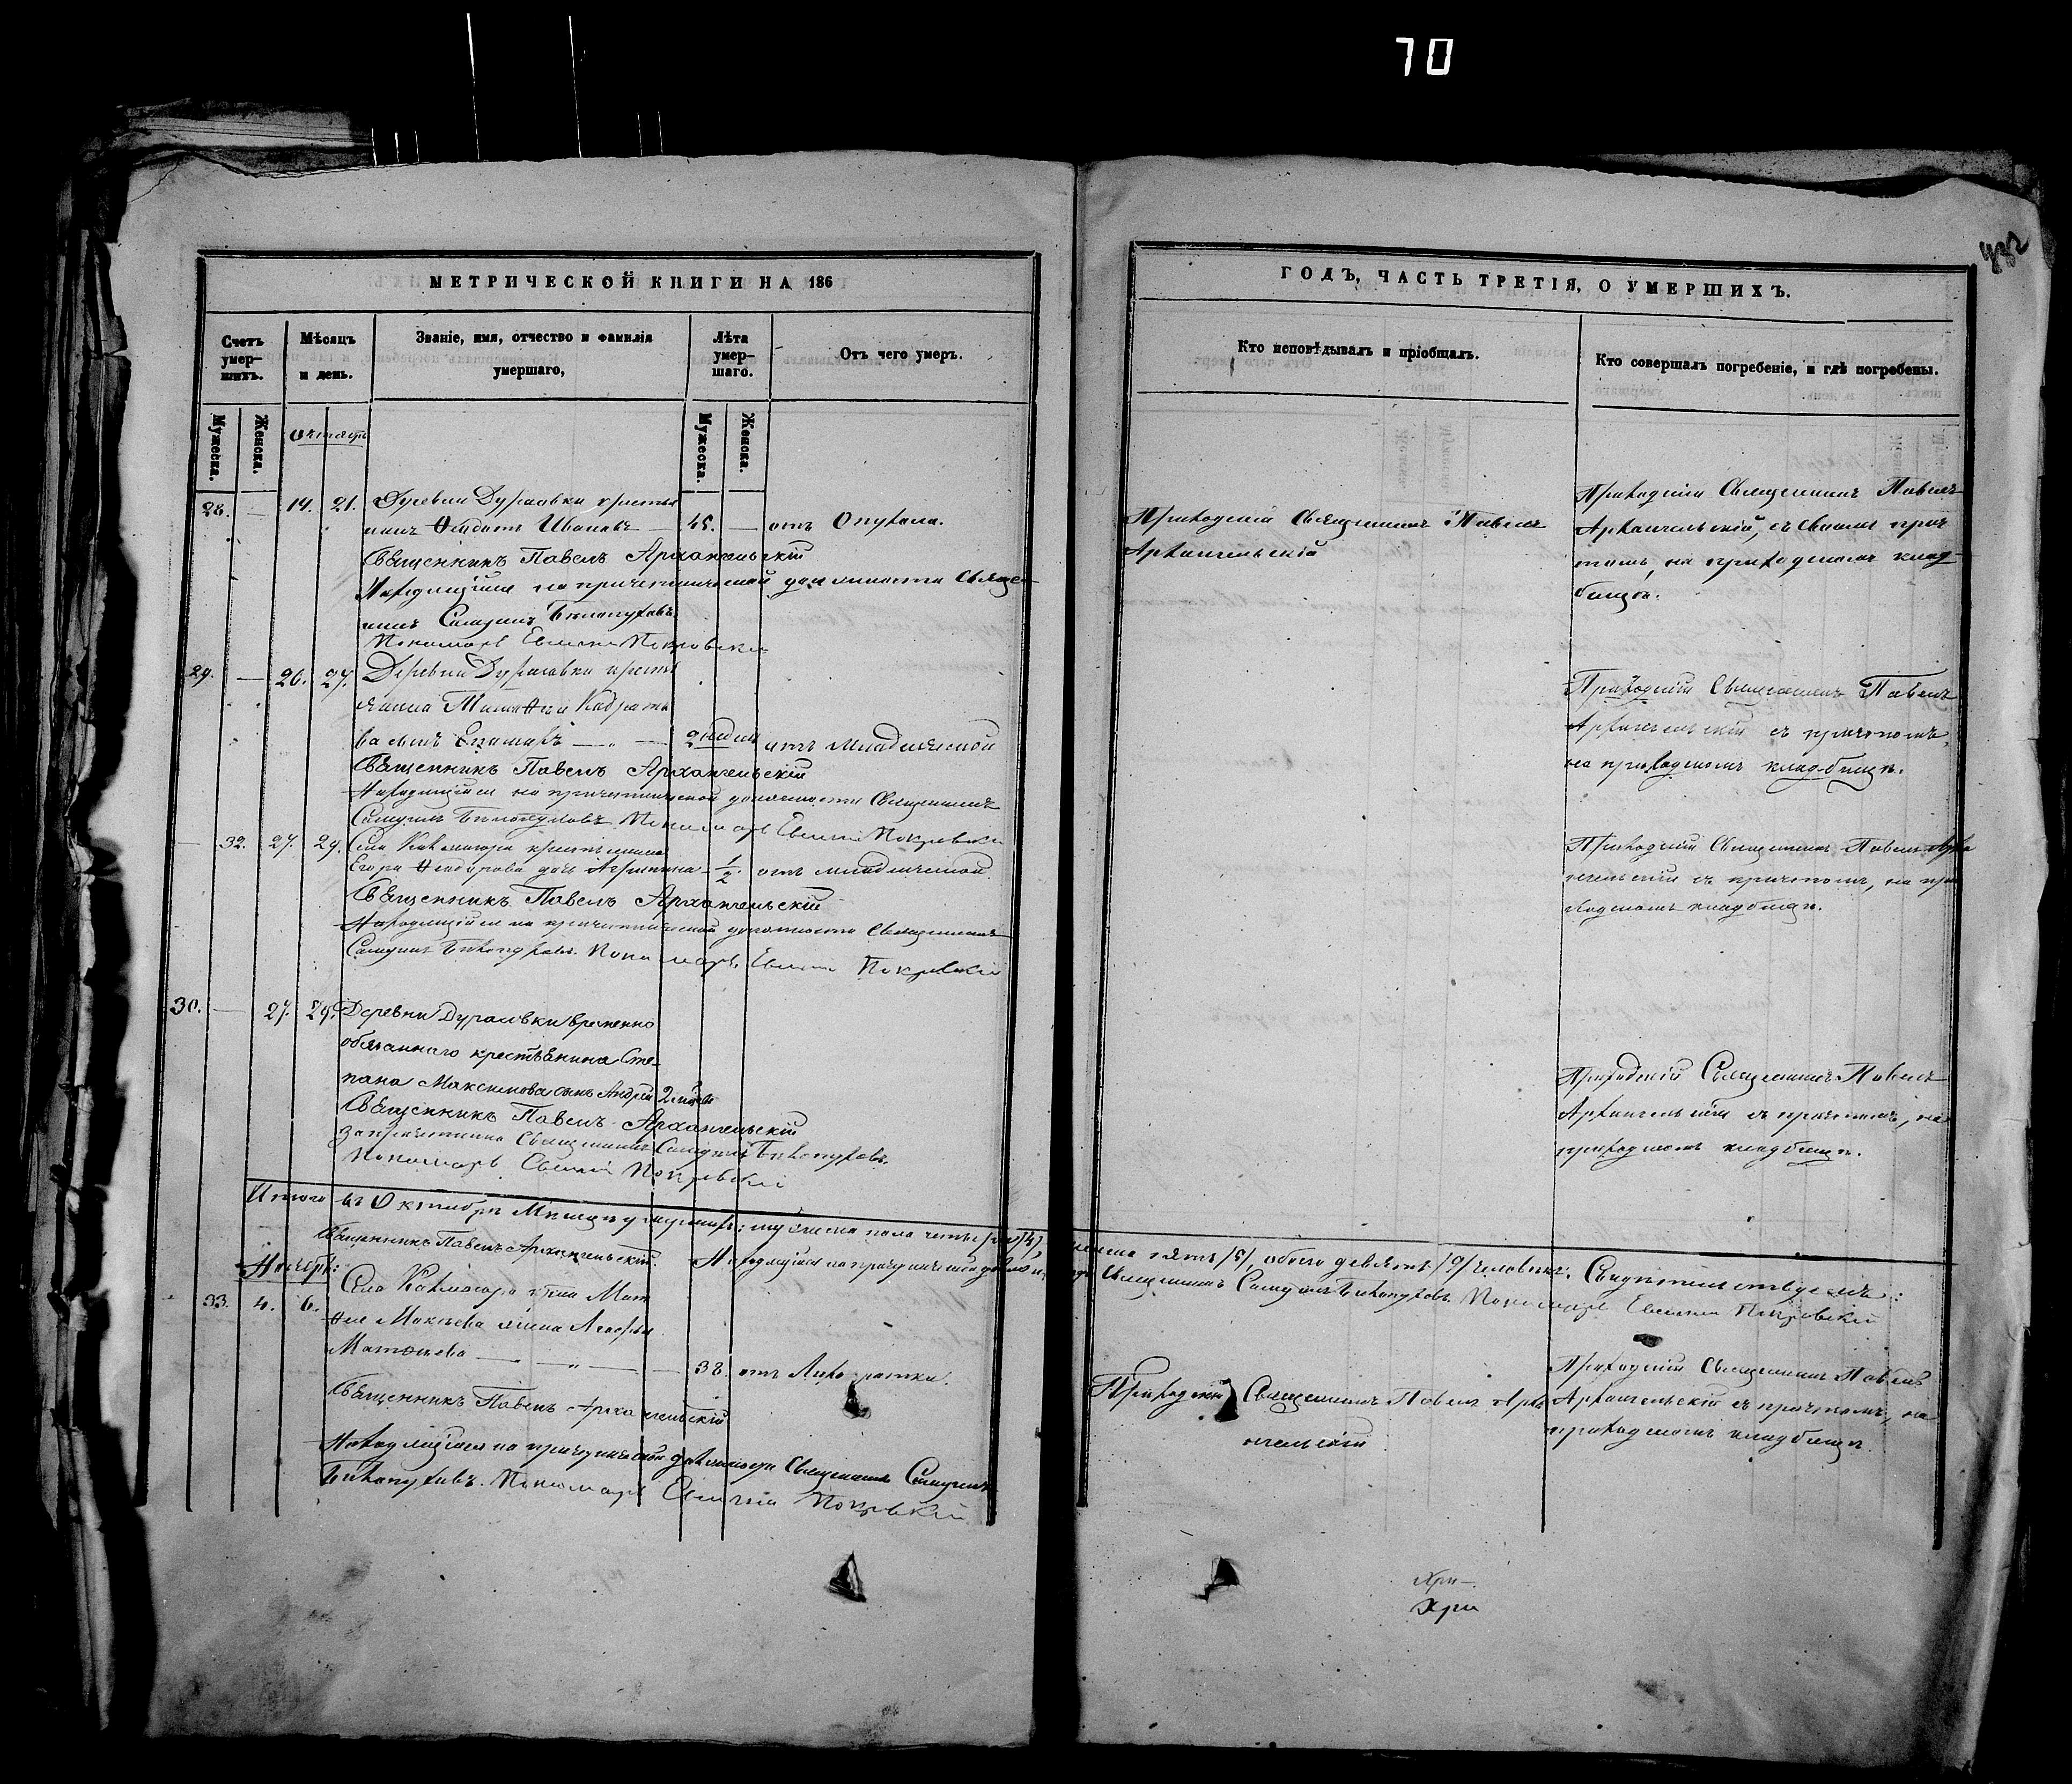 70
432
МЕТРИЧЕСКОЙ КНИГИ НА 186
Счетъ умер-шихъ.
Мѣсяцъ и день.
Званіе, имя, отчество и фамилія умершаго,
Лѣта умер-шаго.
Отъ чего умеръ.
Мужеска.
Женска.
Мужеска.
Женска.
Октябрь
28. — 14. 21. Деревни Дурасовки крестья
нинъ Ѳедотъ Ивановъ — 45. — отъ Опухола.
Священникъ Павелъ Архангельскій
Находящійся на причетнической должности Священ
никъ Самуилъ
Пономарь Евгеній Покровскій
29. — 20. 27. Деревни Дурасовки кресть
янина Тимоѳея
ва сынъ — 2 недели отъ младенческой
Священникъ Павелъ Архангельскій
Находящійся на причетнической должности Священникъ
Самуилъ Пономарь Евгеній Покровскій
— 32. 27. 29. Села крестьянина
Егора Ѳеодорова дочь — 1/2 отъ младенческой.
Священникъ Павелъ Архангельскій
Находящійся на причетнической должности Священникъ
Самуилъ Пономарь Евгеній Покровскій
30. — 27. 29. Деревни Дурасовки временно
обязаннаго крестьянина Сте-
пана Максимова сынъ Андрей 2
Священникъ Павелъ Архангельскій
За причетника Священникъ Самуилъ
Пономарь Евгеній Покровскій
Итого въ Октябрѣ Мѣсяцѣ умерло: мужеска пола четыре /4/,
Священникъ Павелъ Архангельскій. Находящійся на причетнической
Ноябрь:
33. 4. 6. Села
жена
— " — 38. отъ Лихорадки.
Священникъ Павелъ Архангельскій
Находящійся на причетнической должности Священникъ Самуилъ
Пономарь Евгеній Покровскій
ГОДЪ, ЧАСТЬ ТРЕТІЯ, О УМЕРШИХЪ.
Кто исповѣдывалъ и пріобщалъ.
Кто совершалъ погребеніе, и гдѣ погребены.
Приходскій Священникъ Павелъ
Архангельскій
Приходскій Священникъ Павелъ
Архангельскій, съ своимъ прич
томъ, на приходскомъ клад-
бищѣ.
Приходскій Священникъ Павелъ
Архангельскій съ причтомъ,
на приходскомъ кладбищѣ.
Приходскій Священникъ Павелъ Арха
нгельскій съ причтомъ, на при
ходскомъ кладбищѣ.
Приходскій Священникъ Павелъ
Архангельскій съ причтомъ, на
приходскомъ кладбищѣ.
женска пять /5/, обоего девять /9/ человѣкъ. Свидѣтельствуемъ:
Священникъ Самуилъ Пономарь Евгеній Покровскій
Приходскій Священникъ Павелъ Арха
нгельскій
Приходскій Священникъ Павелъ
Архангельскій съ причтомъ, на
приходскомъ кладбищѣ.
Хри-
Хри